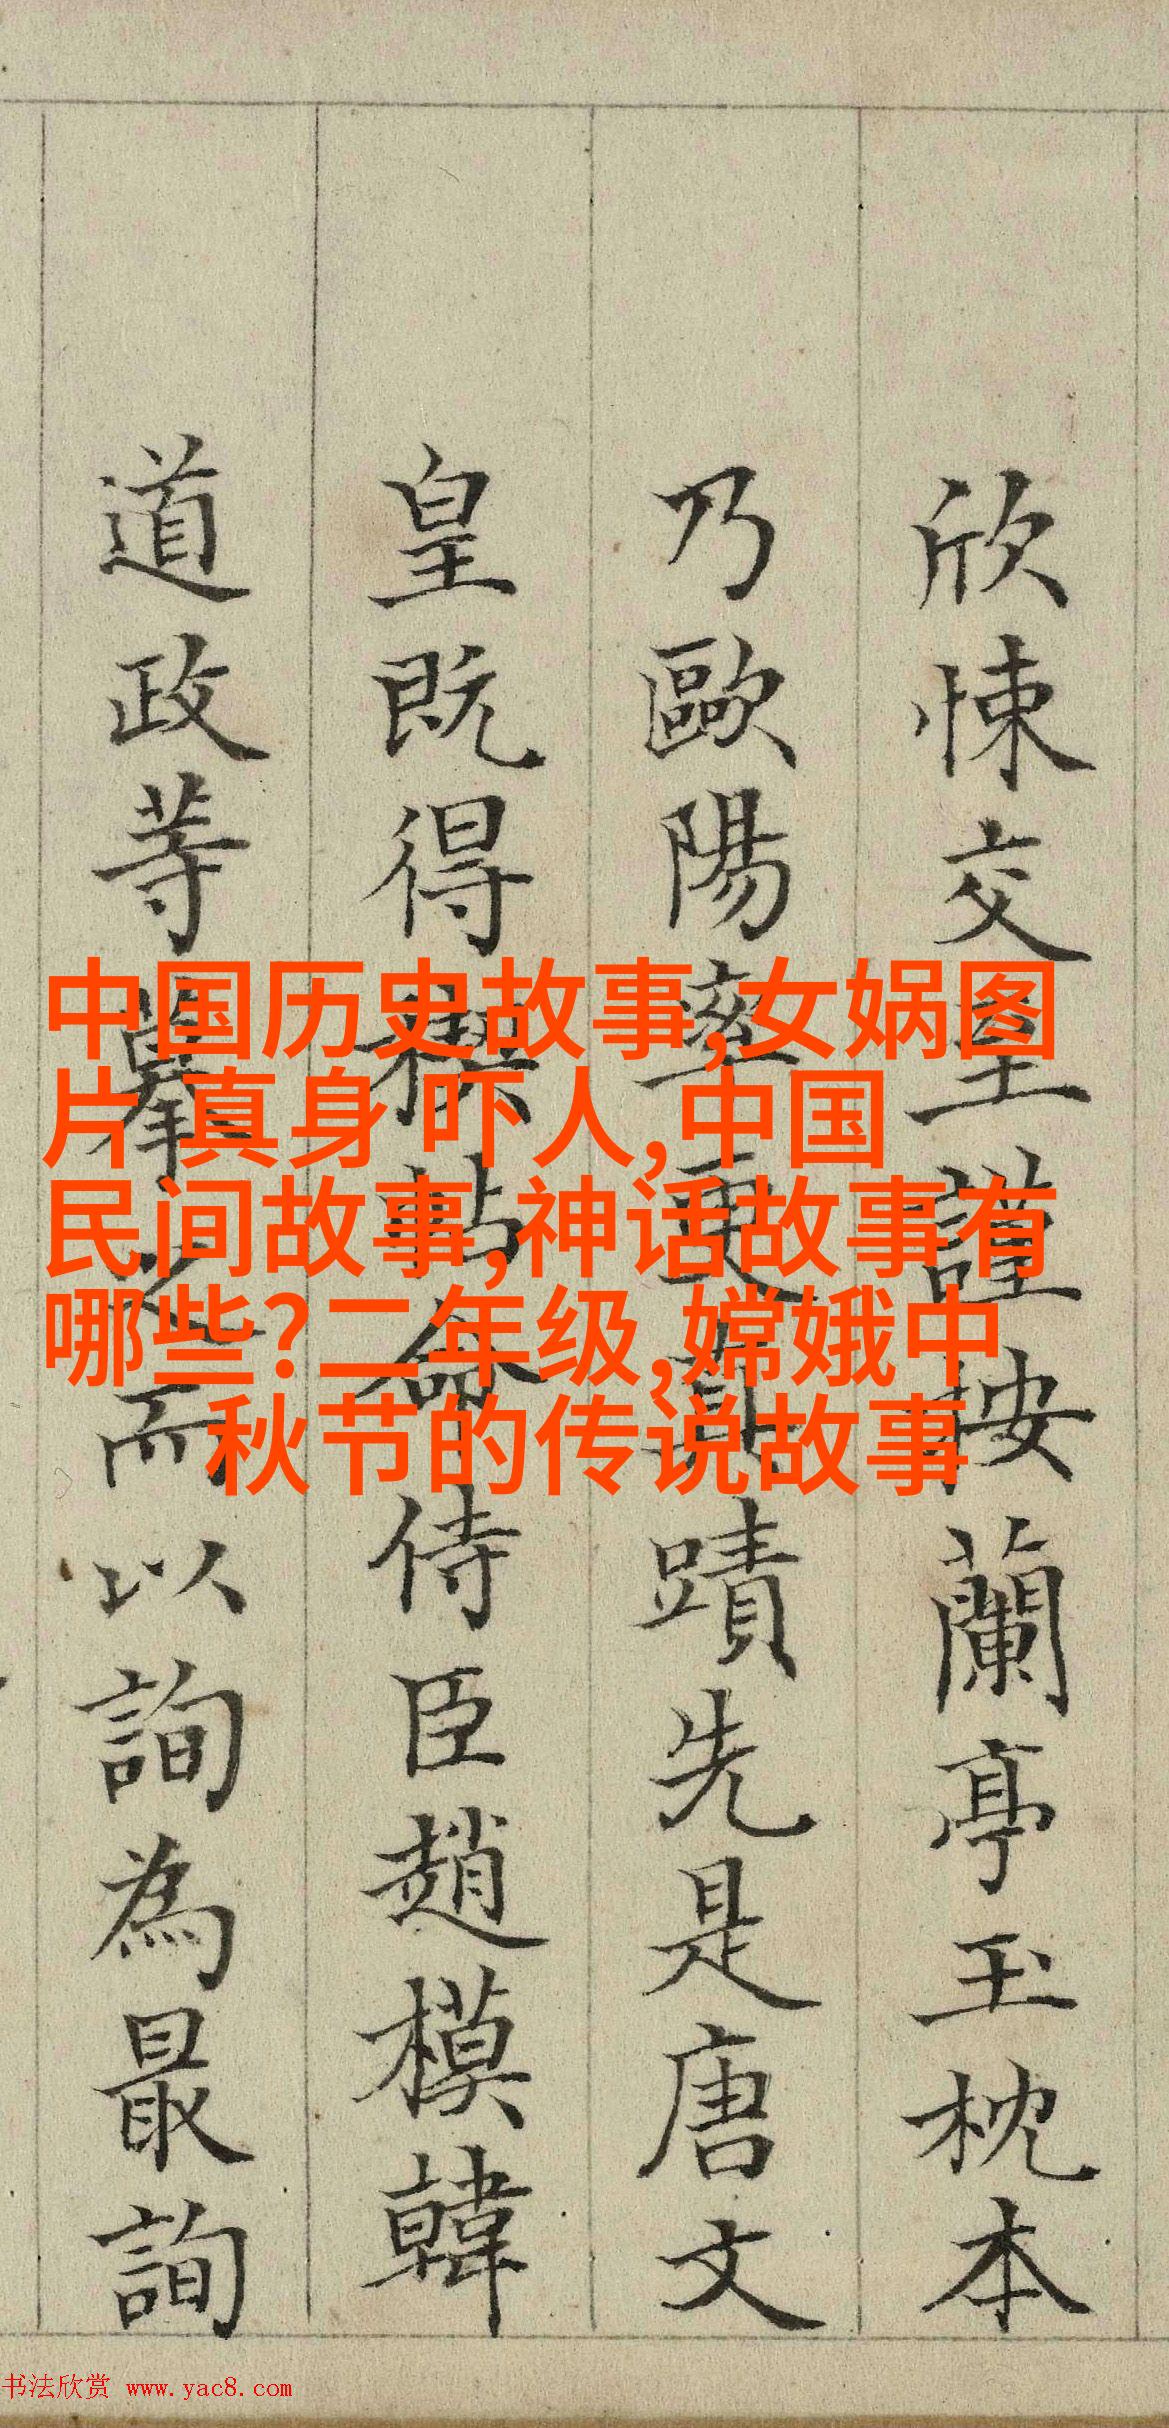 欣悚交至謹按蘭亭玉枕本
乃歐陽率更真蹟先是唐文
皇既得禊帖命侍臣趙模韓
道政等摹之而以詢為最詢
中国历史故事,女娲图
片 真身 吓人,中国
民间故事,神话故事有
哪些?二年级,嫦娥中
秋节的传说故事
书法欣赏 www.yac8.com